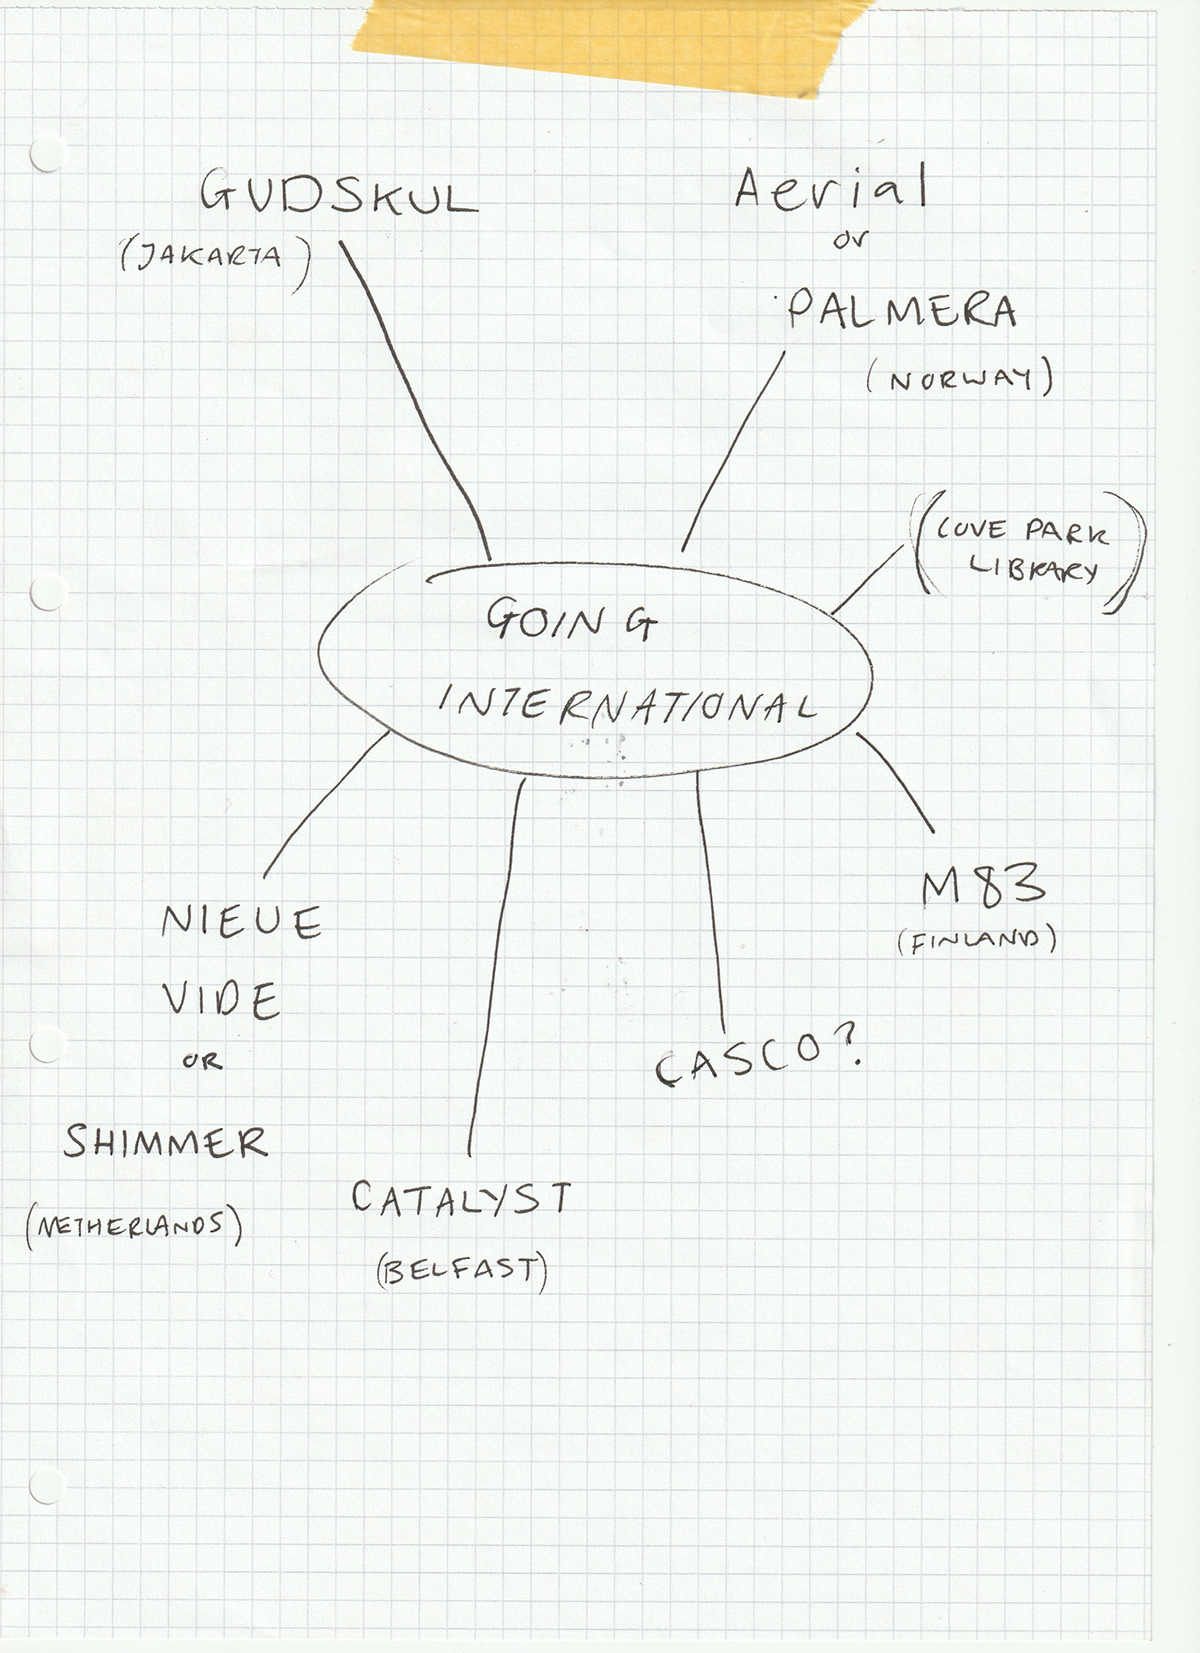 GUDSKUL
(JAKARTA)
Aerial
or
PALMERA
(NORWAY)
(LOVE PARK
LIBRARY)
GOING
INTERNATIONAL
M83
(FINLAND)
CASCO?
CATALYST
(BELFAST)
NIEUE
VIDE
OR
SHIMMER
(NETHERLANDS)